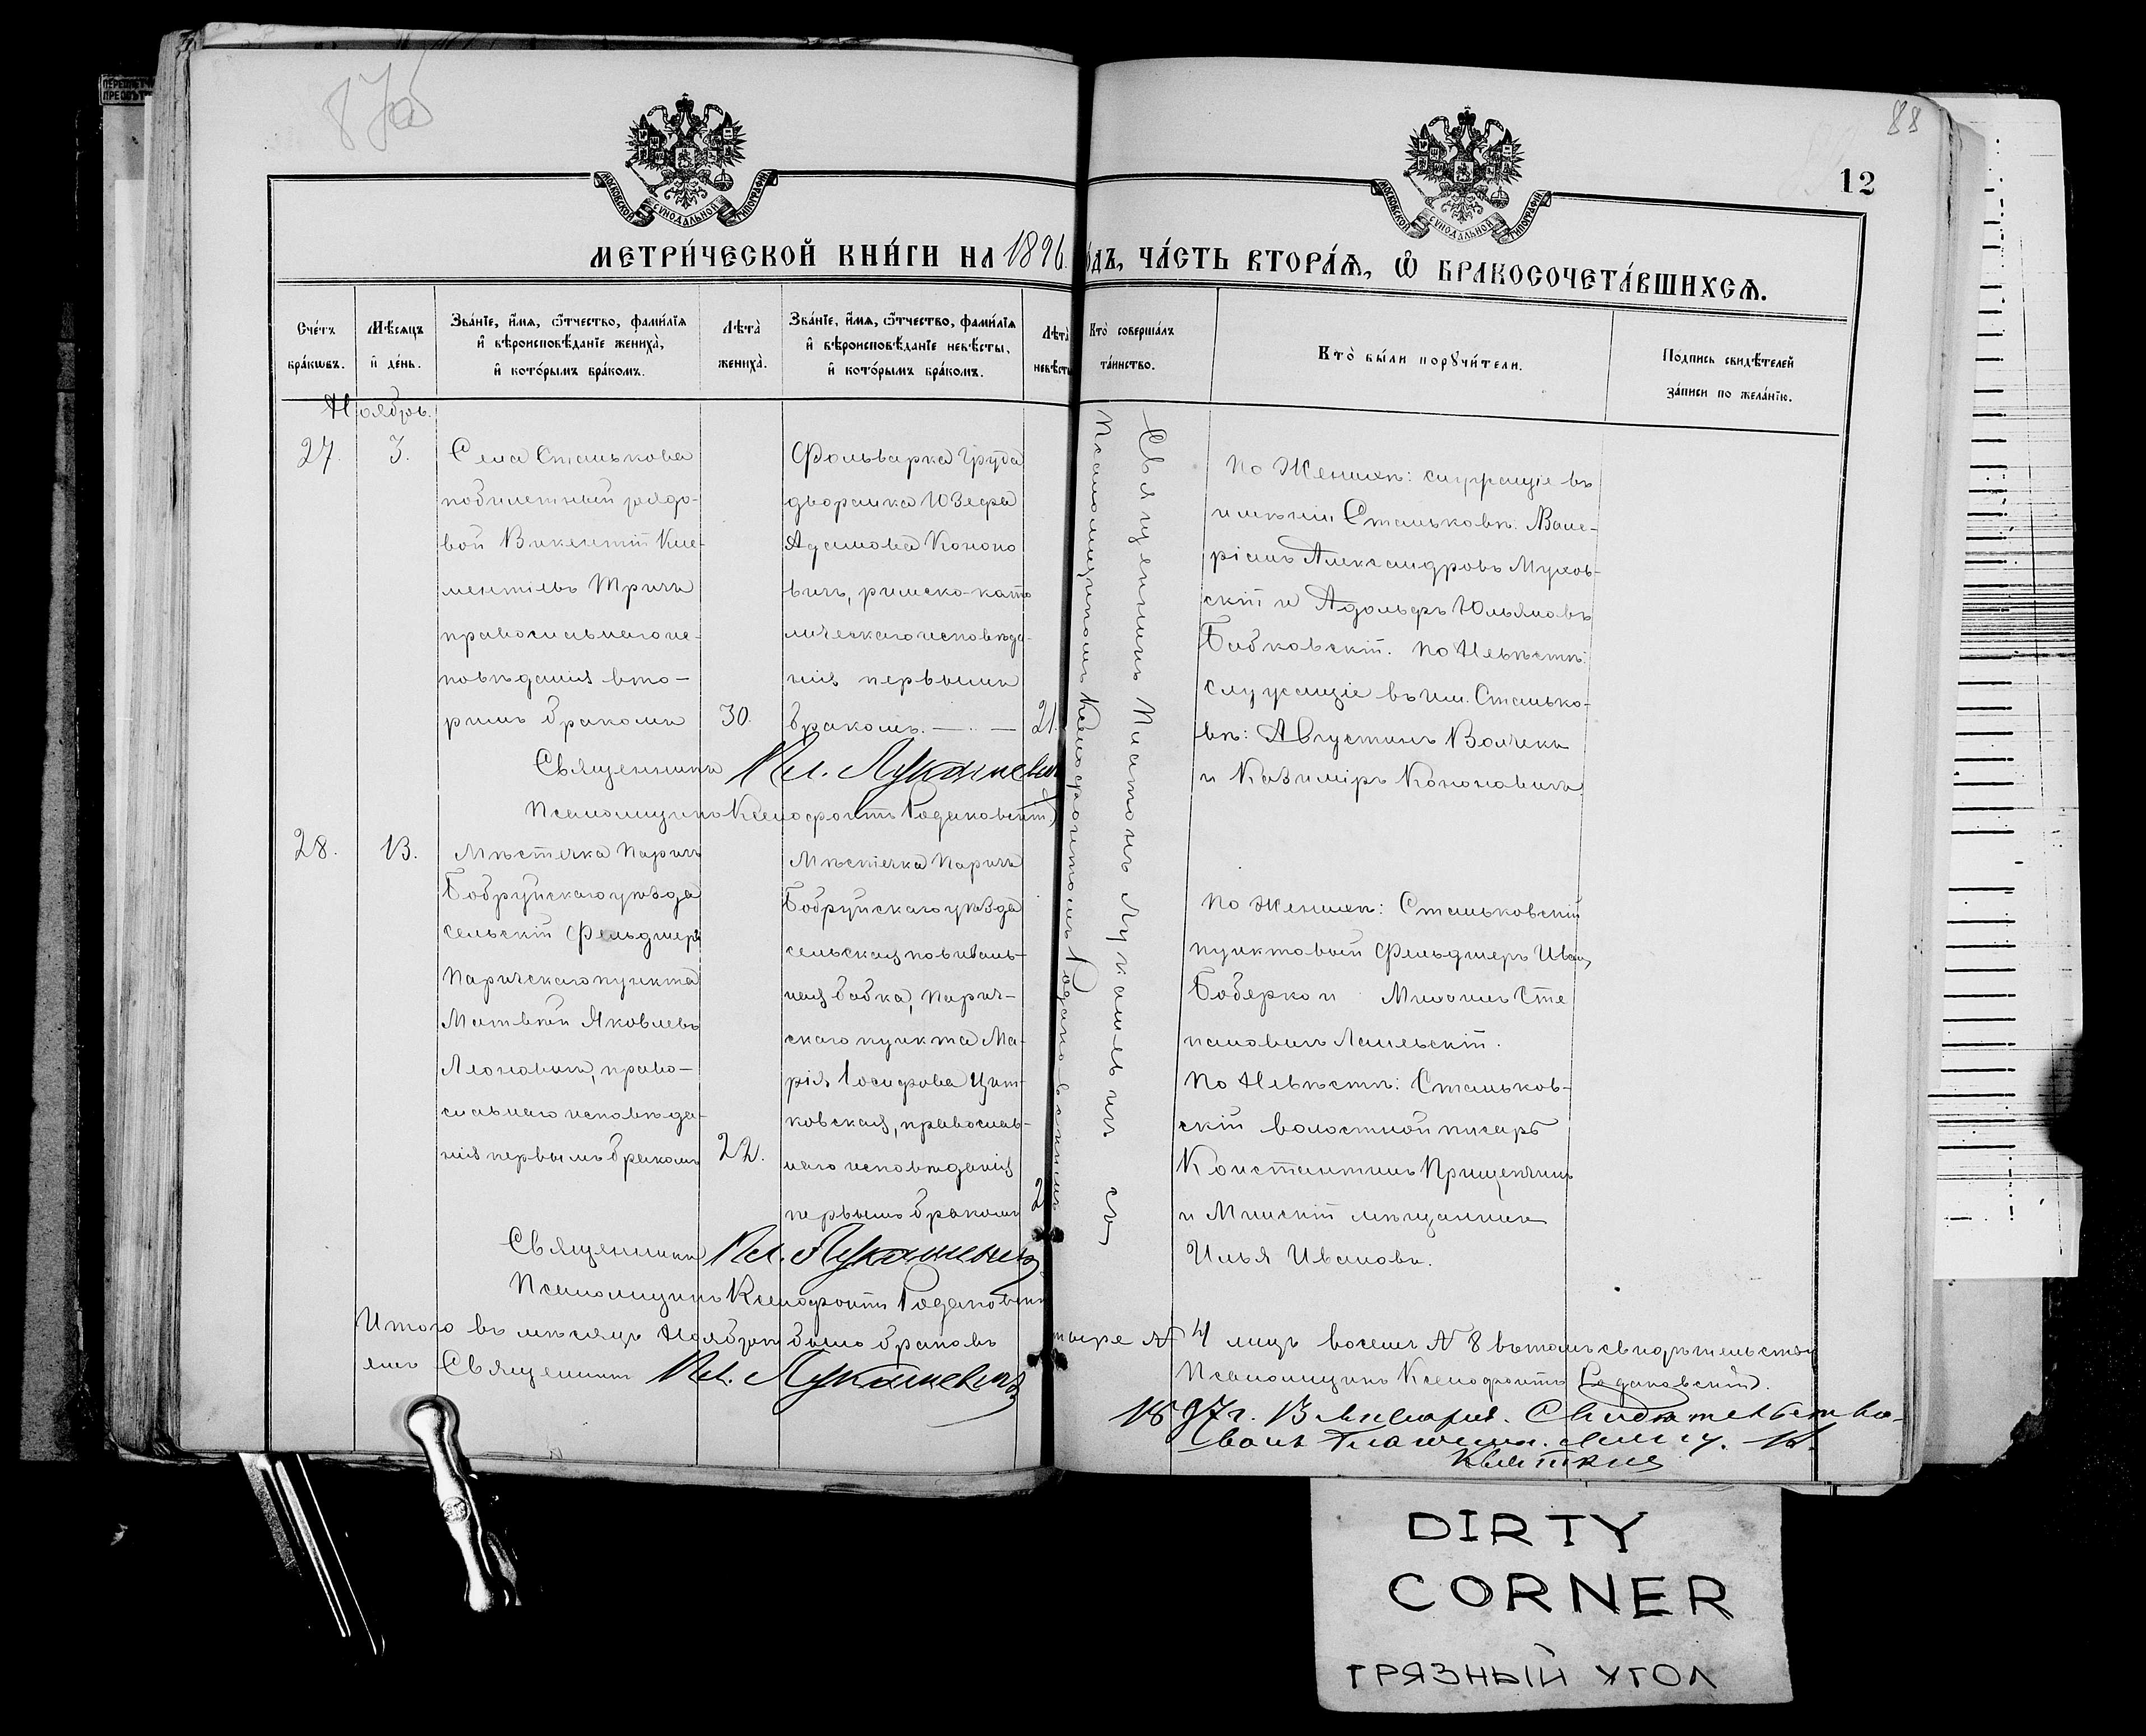 87об
88
12
МОСКОВСКОЙ СѴНОДАЛЬНОЙ ТИПОГРАФІИ
МОСКОВСКОЙ СѴНОДАЛЬНОЙ ТИПОГРАФІИ
МЕТРИ́ЧЕСКОЙ КНИ́ГИ НА 1896 ГО́ДЪ, ЧА́СТЬ ВТОРА́Ѧ, Ѽ БРАКОСОЧЕТА́ВШИХСѦ.
Сче́тъ бра́кѡвъ.
Мѣ́сяцъ и҆ де́нь.
Зва́нїе, и҆́мѧ, ѻ҆́тчество, фами́лїѧ
и҆ вѣроисповѣ́данїе жениха̀,
и҆ кото́рымъ бра́комъ.
Лѣ́та жениха̀.
Зва́нїе, и҆́мѧ, ѻ҆́тчество, фами́лїѧ
и҆ вѣроисповѣ́данїе невѣ́сты,
и҆ кото́рымъ бра́комъ.
Лѣ́та невѣ́сты
Кто̀ соверша́лъ
та́инство.
Кто̀ бы́ли порꙋчи́тели.
По́дпись свидѣ́телей
за́писи по жела́нїю.
Ноябрь.
27.
3.
Села Станькова
побилетный рядо-
вой Викентій Кле-
ментіевъ Тричъ
православнаго ис-
повѣданія вто-
рымъ бракомъ
30.
Фольварка Груда
дворянка Юзефа
Адамова Конон
вичъ, римско-като
лическаго исповѣда-
нія первымъ
бракомъ. — . —
21.
Священникомъ Платонъ Лукашевичъ съ
Псаломщикомъ Ксенофонтомъ Родаковскимъ
По Женихѣ: служащіе въ
имѣніи Станьковѣ: Вале-
ріанъ Александровъ Мухов-
скій и Адольфъ Юльяновъ
Бабковскій. По Невѣстѣ:
служащіе въ им. Станько-
вѣ: Августинъ Волчекъ
и Казиміръ Кононовичъ
Священникъ Пл. Лукашевичъ
Псаломщикъ Ксенофонтъ Родаковскій
28.
13.
Мѣстечка Паричъ
Бобруйскаго уѣзда
сельскій фельдшеръ
Паричскаго пункта
Матвѣй Яковлевъ
Леоновичъ, право-
славнаго исповѣда-
нія первымъ бракомъ
22.
Мѣстечка Паричъ
Бобруйскаго уѣзда
сельская повиваль-
ная бабка, Парич-
скаго пункта Ма-
рія Іосифова Цит-
ковская, православ-
наго исповѣданія
первымъ бракомъ
2
По Женихѣ: Станьковскій
пунктовый фельдшеръ Иван
Боберко и Михаилъ Сте
пановичъ
По Невѣстѣ: Станьков-
скій волостной писарь
Константинъ Прищепчикъ
и Минскій мѣщанинъ
Илья Ивановъ.
Священникъ Пл. Лукашевичъ
Псаломщикъ Ксенофонтъ Родаковскій
Итого въ мѣсяцѣ Ноябрѣ было браковъ
тыре № 4 лицъ восемь № 8 въ томъ свидѣтельству
емъ Священникъ Пл. Лукашевичъ
Псаломщикъ Ксенофонтъ Родаковскій.
1897 г. 13 Января. Свидѣтельство-
валъ
DIRTY
CORNER
ГРЯЗНЫЙ УГОЛ